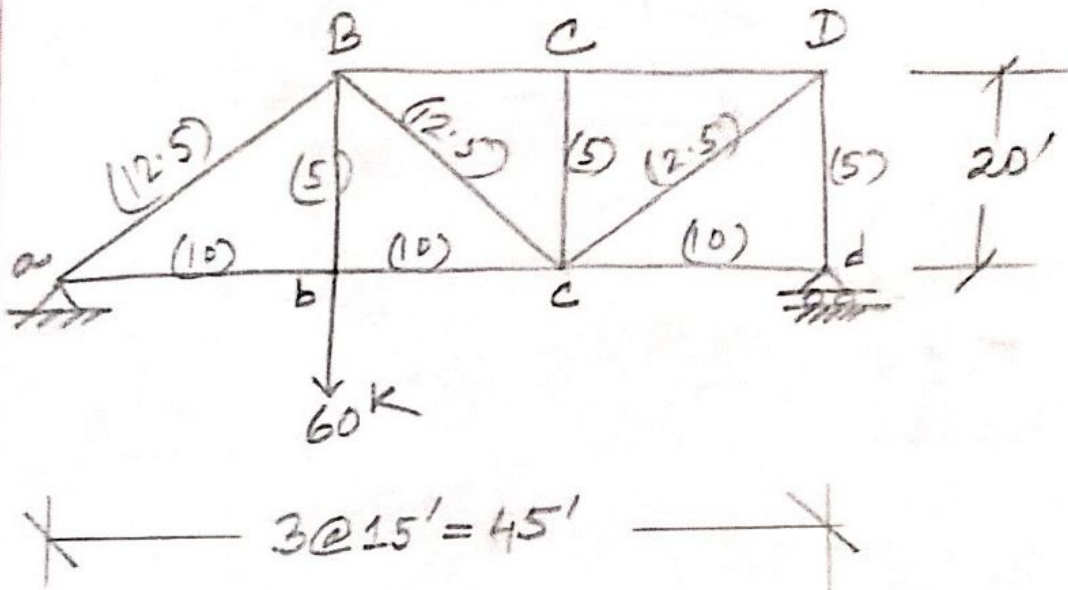 B C D
(12.5) (5) (12.5) (5) (12.5) (5) 20'
a (10) (10) (10) d
b c
60K
3@15'=45'